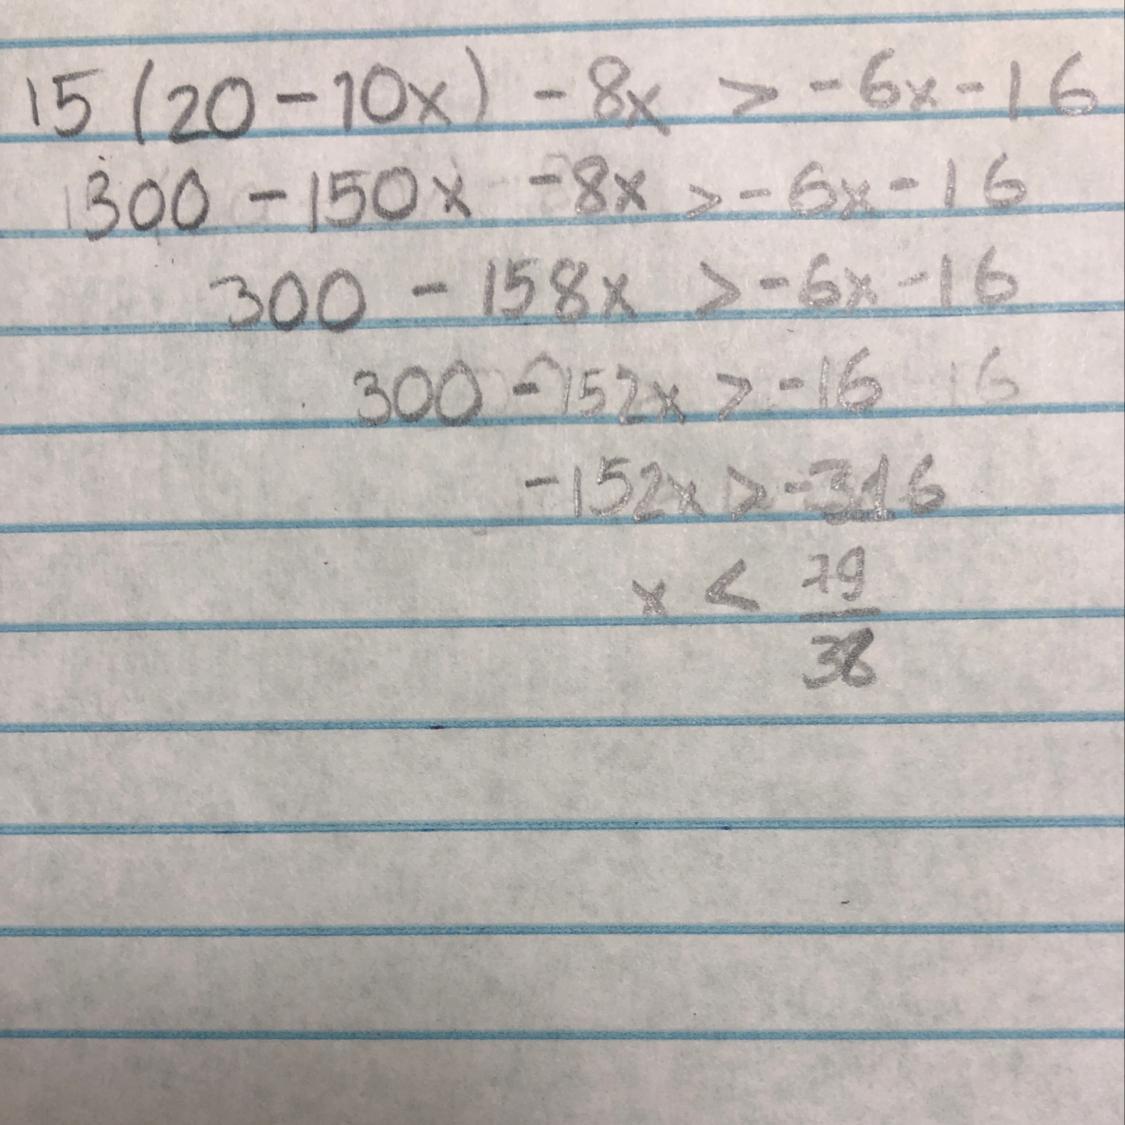 15 (20 - 10x) - 8x > -6x - 16
300 - 150x - 8x > -6x - 16
300 - 158x > -6x - 16
300 - 152x > -16 16
-152x > -316
x < 79/38